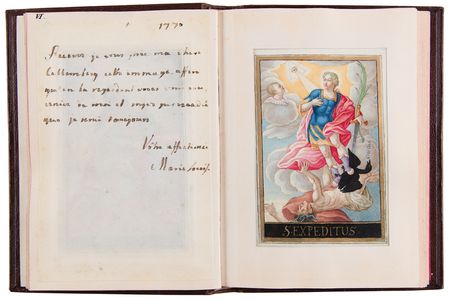 VI.
1770
Recevez je vous prie ma chere
cette immage, affin
qu'en la regardant vous vous
de moi et soyez persuadée
que je serai toujours
Votre affectionée
Marie Louise
S. EXPEDITUS.